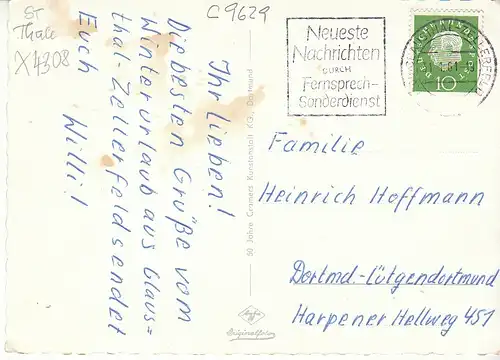 ST
Thale
X4308
C 9629
Ihr Lieben!
Die besten Grüße vom
Winterurlaub aus Claus=
thal-Zellerfeld sendet
Euch
Willi!
50 Jahre Gruners Kunstanstalt KG., Dortmund
Agfa
Originalfoto
Neueste
Nachrichten
DURCH
Fernsprech-
Sonderdienst
DEUTSCHE BUNDESPOST
10
Familie
Heinrich Hoffmann
Dortmd.-Lütgendortmund
Harpener Hellweg 451